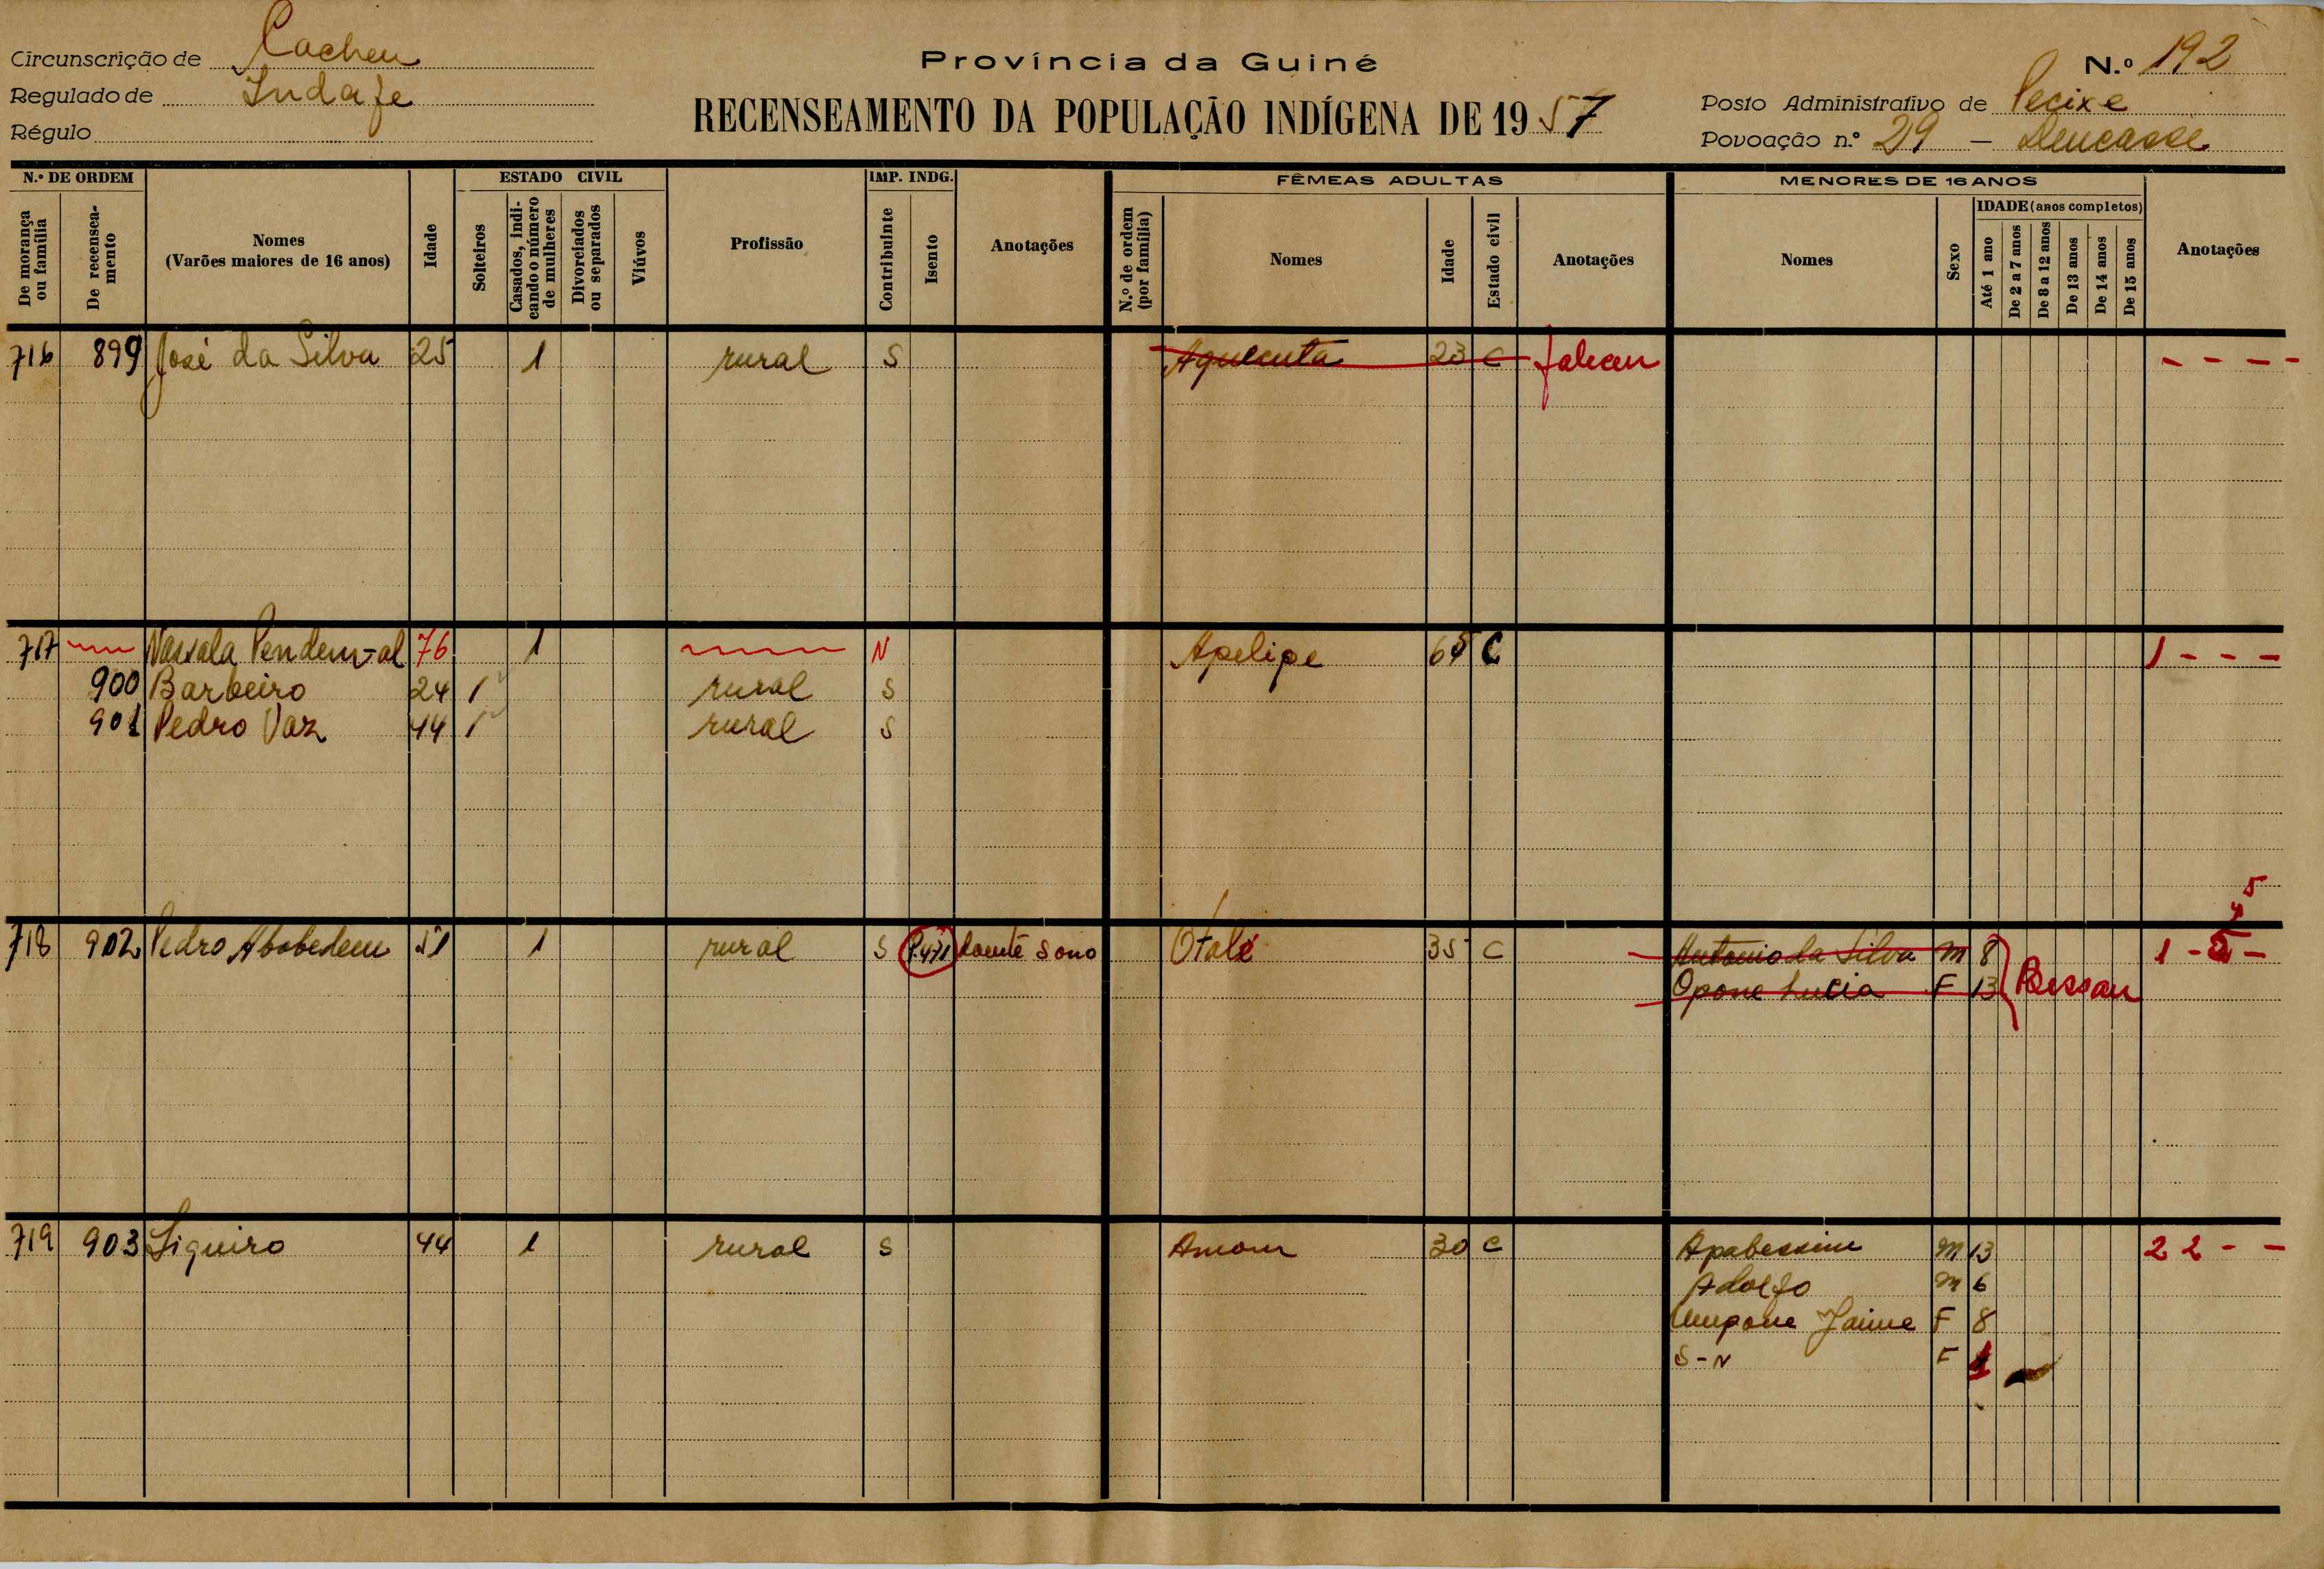 Circunscrição de Cacheu
Regulado de Indafe
Régulo
Província da Guiné
RECENSEAMENTO DA POPULAÇÃO INDÍGENA DE 1957
N.º 192
Posto Administrativo de Pecixe
Povoação n.º 29 –
N.º DE ORDEM
De morança ou família
De recenseamento
Nomes
(Varões maiores de 16 anos)
Idade
ESTADO CIVIL
Solteiros
Casados, indicando o número de mulheres
Divorciados ou separados
Viúvos
Profissão
IMP. INDG.
Contribuinte
Isento
Anotações
FÊMEAS ADULTAS
N.º de ordem (por família)
Nomes
Idade
Estado civil
Anotações
MENORES DE 16 ANOS
Nomes
Sexo
IDADE (anos completos)
Até 1 ano
De 2 a 7 anos
De 8 a 12 anos
De 13 anos
De 14 anos
De 15 anos
Anotações
716 899 José da Silva 25 1 rural S 23 C - - - -
717 76 1 N Apelipe C 1 - - -
900 Barbeiro 24 1 rural S
901 Pedro Vaz 44 1 rural S
718 902 Pedro Abobedem 51 1 rural S Otalé 35 C Antonio da Silva M 8 1 -
Opone Lucia F 13 Bissau
719 903 Siqueiro 44 1 rural S 30 C M 13 2 2 - -
Adolfo M 6
Jaime F 8
S-N F 1